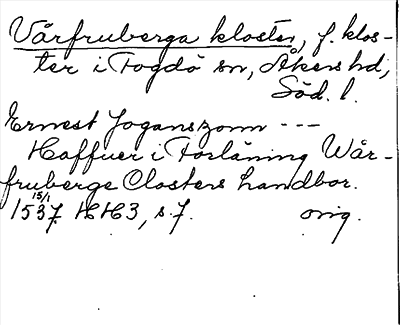 Vårfruberga kloster, f. klos-
ter i Fogdö sn, Åkers hd,
Söd. l.
Ernest Joganszonn ---
Haffuer i Forläning Wår-
fruberge Closters landbor.
15/1
1537 HH3, s. 7. orig.